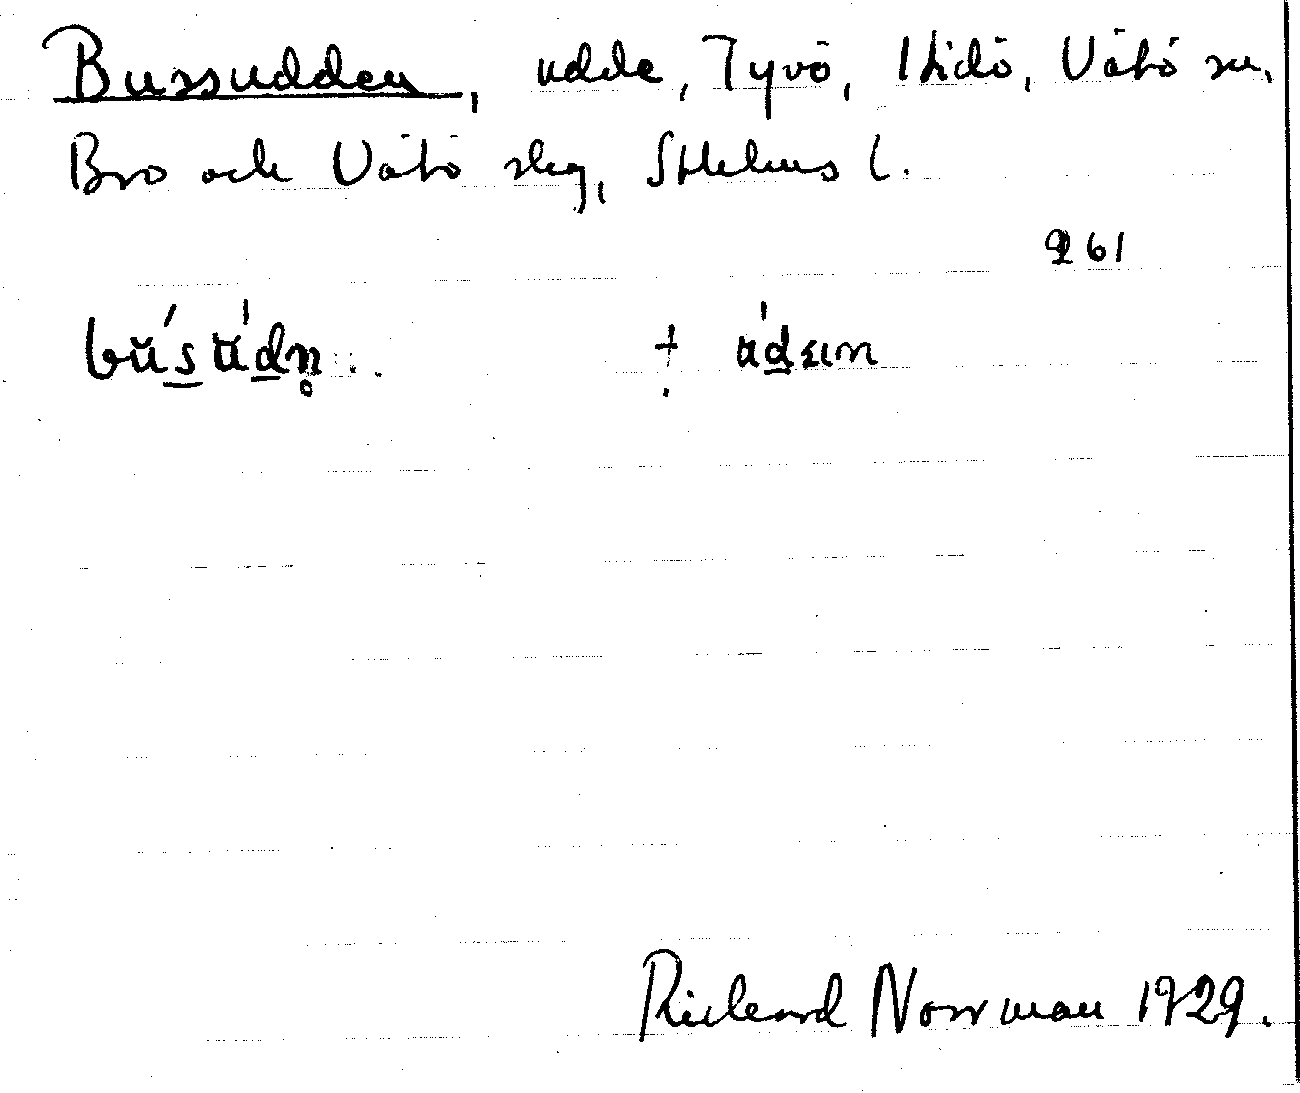 Bussudden, udde, Tyvö, Hidö, Vätö sn,
Bro och Vätö skg, Sthlms l.
261
bŭ́sŭ́dn̥ + ŭ́dɛɩn
Richard Norrman 1929.